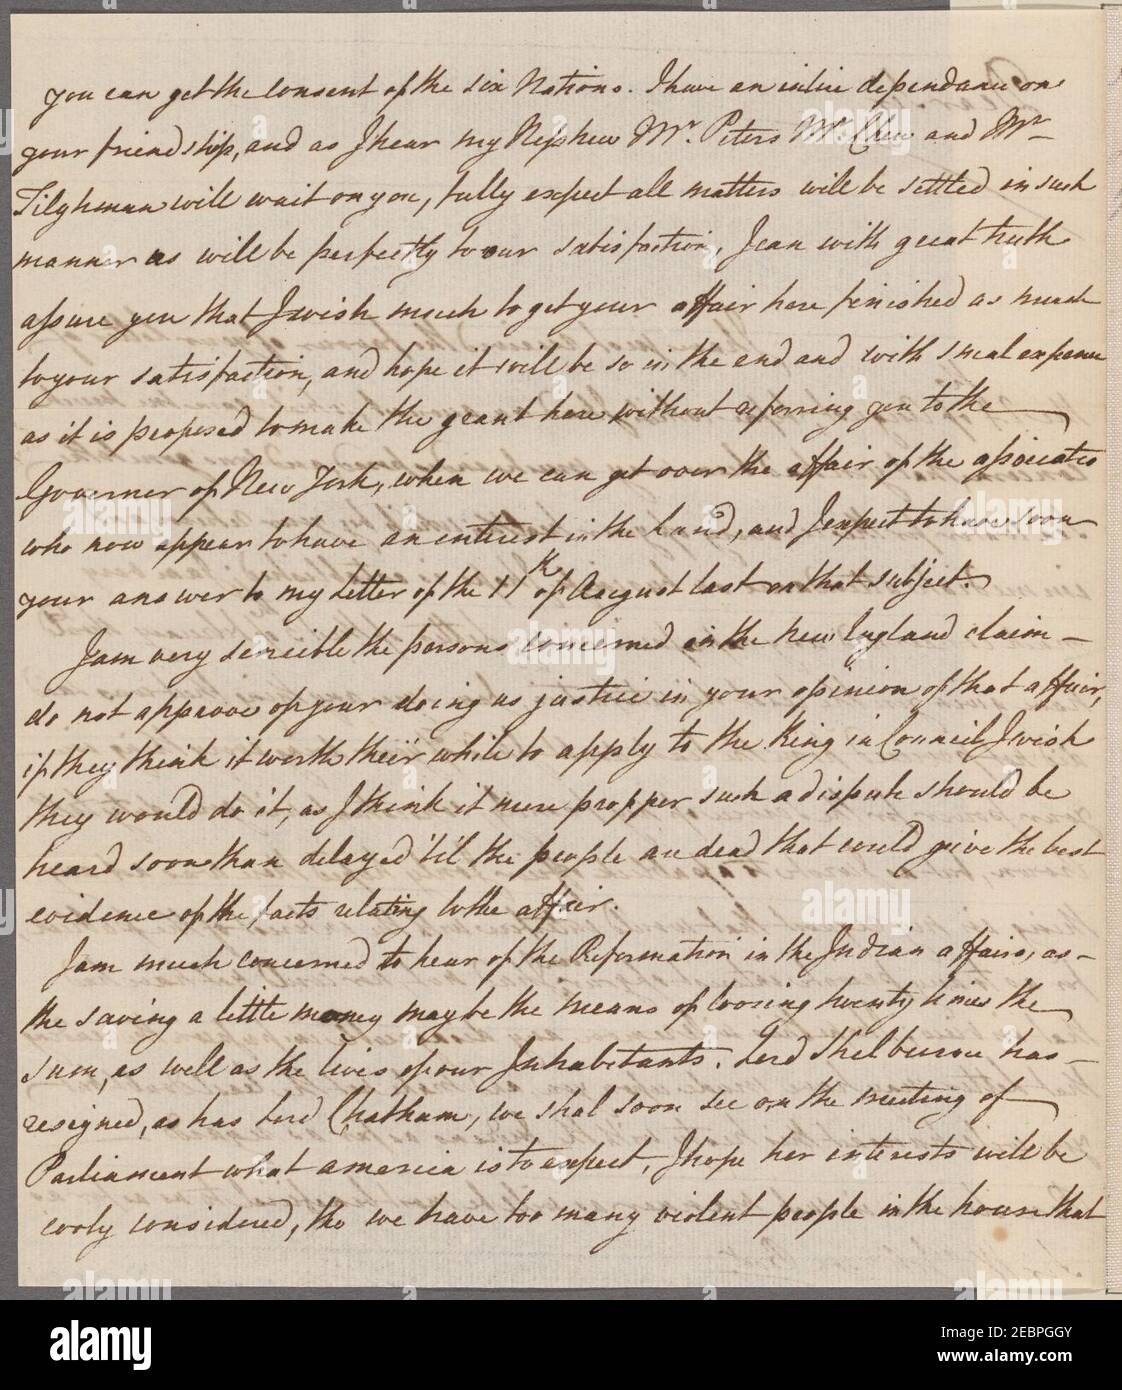 you can get the Consent of the six Nations. I have an intire dependance on
your friendship, and as I hear my Nephew Mr. Peters Mr. Chew and Mr
Tilghman will wait on you, fully expect all matters will be settled in such
manner as will be perfectly to our satisfaction, I can with great truth
assure you that I wish much to get your affair here finished as much
to your satisfaction, and hope it will be so in the end and with smal expence
as it is proposed to make the grant here without referring you to the
Governer of New York, when we can get over the affair of the associates
who now appear to have an interest in the Land, and I expect to have soon
your answer to my Letter of the 11th of August last on that subject.
I am very sencible the persons concerned in the New England claim
do not approve of your doing us justice in your opinion of that affair,
if they think it worth their while to apply to the King in Council I wish
they would do it, as I think it more propper such a dispute should be
heard soon than delayed 'til the people are dead that could give the best
evidence of the facts relating to the affair.
I am much concerned to hear of the Reformation in the Indian affairs, as
the saving a little money may be the means of loosing twenty times the
sum, as well as the lives of our Inhabitants. Lord Shelburne has
resigned, as has Lord Chatham, we shal soon see on the meeting of
Parliament what america is to expect, I hope her interests will be
cooly considered, tho we have too many violent people in the house that
alamy
Image ID: 2EBPGGY
www.alamy.com